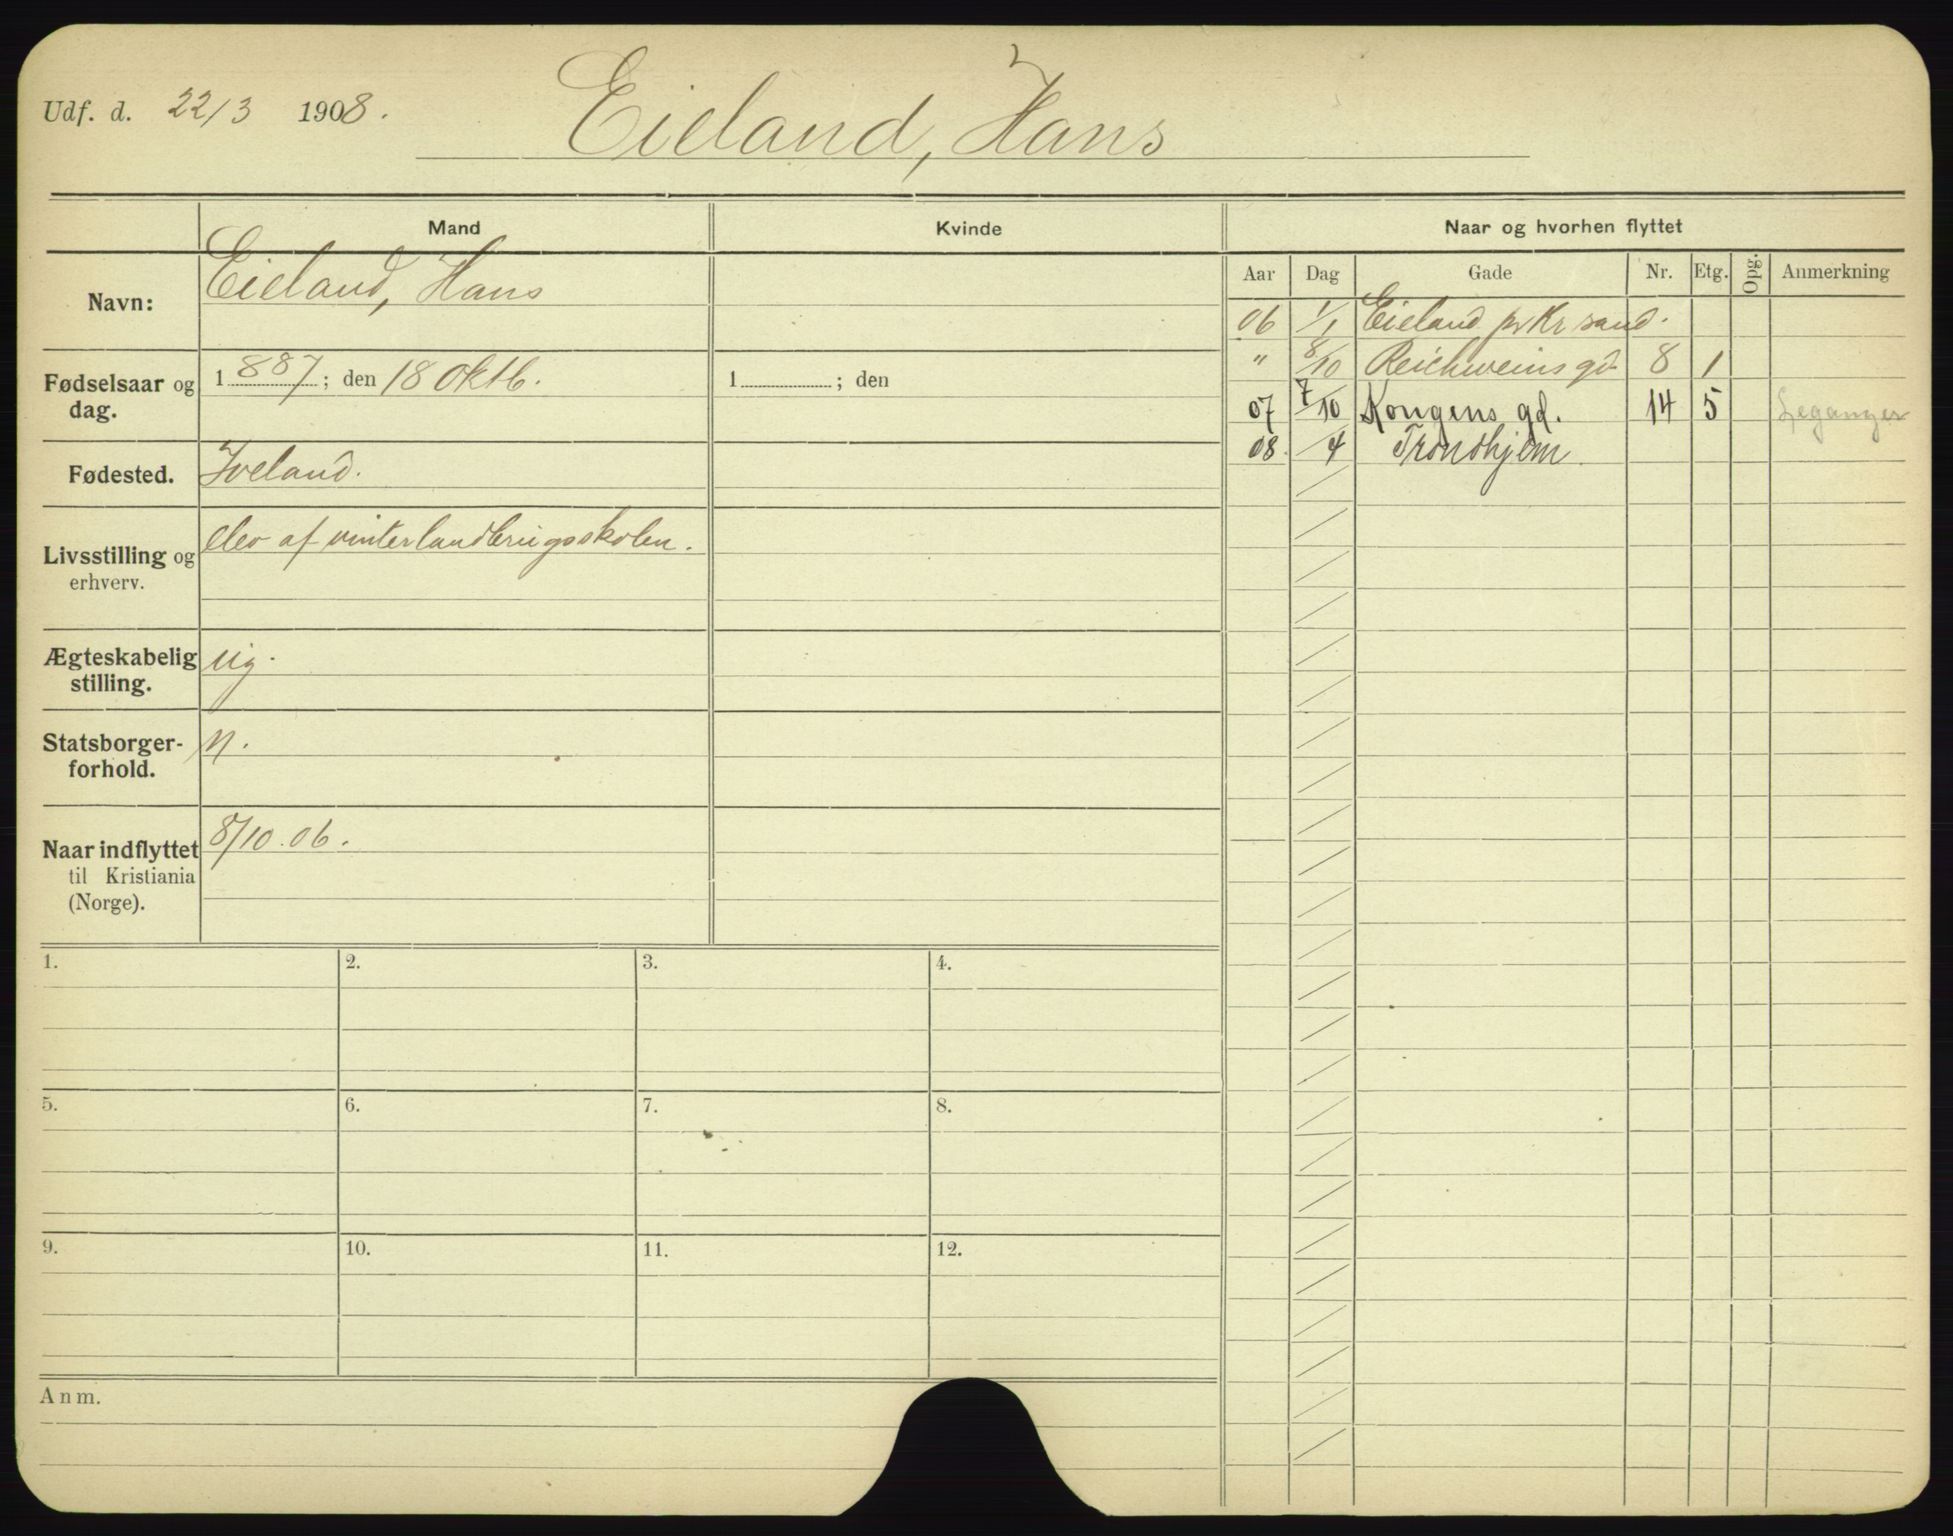 Udf. d. 22/3 1908.
Eieland, Hans
Mand
Kvinde
Naar og hvorhen flyttet
Navn:
Eieland, Hans
Fødselsaar og dag.
1887; den 18 Oktb.
1 ; den
Fødested.
Iveland.
Livsstilling og erhverv.
elev af vinterlandbrugsskolen.
Ægteskabelig stilling.
ug.
Statsborger-
forhold.
N.
Naar indflyttet
til Kristiania
(Norge).
8/10.06.
Aar Dag Gade Nr. Etg. Opg. Anmerkning
06 1/1 Eieland pr Kr sand.
" 8/10 Reichweinsgd 8 1
07 7/10 Kongens gd. 14 5 Leganger
08. /4 Trondhjem
1. 2. 3. 4.
5. 6. 7. 8.
9. 10. 11. 12.
Anm.